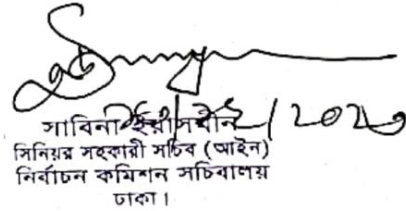 সাবিনা ইয়াসমীন
সিনিয়র সহকারী সচিব (আইন)
নির্বাচন কমিশন সচিবালয়
ঢাকা।